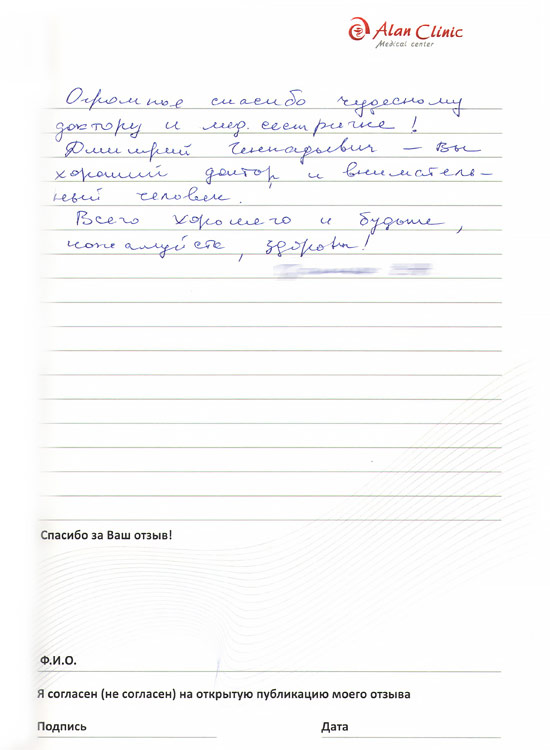 Alan Clinic
Medical center
Огромное спасибо чудесному
доктору и мед. сестричке!
Дмитрий Геннадьевич – Вы
хороший доктор и вниматель-
ный человек.
Всего хорошего и будьте,
пожалуйста, здоровы!
Спасибо за Ваш отзыв!
Ф.И.О.
Я согласен (не согласен) на открытую публикацию моего отзыва
Подпись Дата